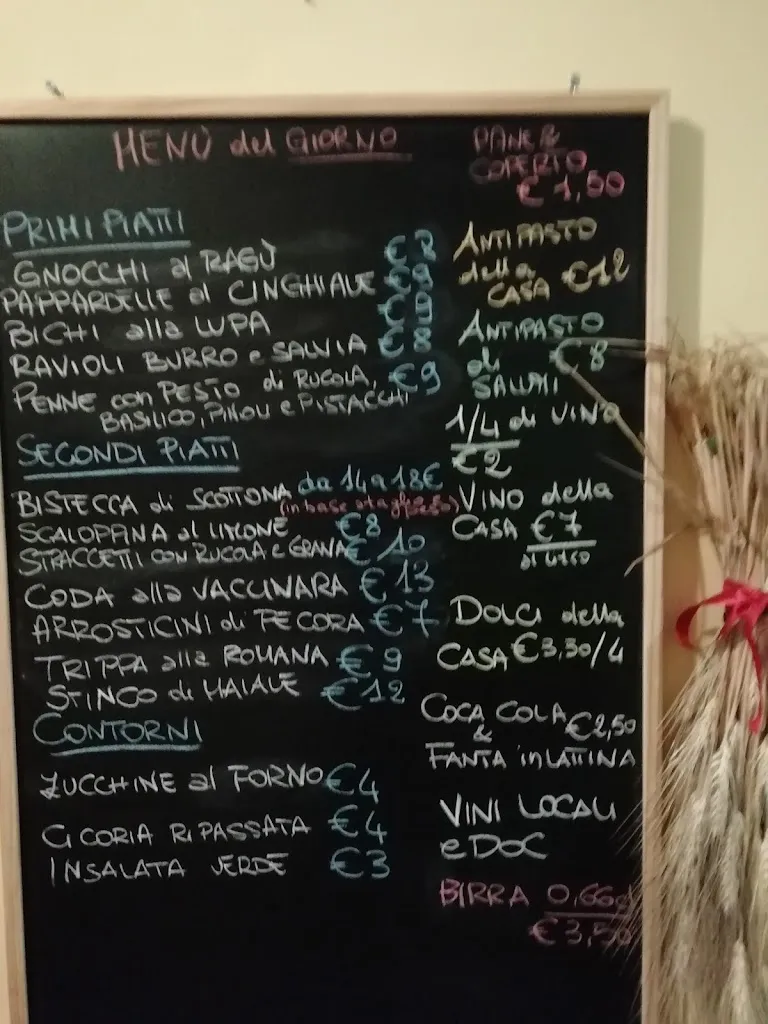 MENÙ del GIORNO
PRIMI PIATTI
GNOCCHI al RAGÙ
PAPPARDELLE al CINGHIALE €9
BICHI alla LUPA €9
RAVIOLI BURRO e SALVIA €8
PENNE con PESTO di RUCOLA, €9
BASILICO, PINOLI e PISTACCHI
SECONDI PIATTI
BISTECCA di SCOTTONA da 14 a 18€
(in base a taglio
SCALOPPINA al LIMONE €8
STRACCETTI CON RUCOLA e GRANA €10
CODA alla VACCINARA €13
ARROSTICINI di PECORA €7
TRIPPA alla ROMANA €9
STINCO di MAIALE €12
CONTORNI
ZUCCHINE al FORNO €4
CICORIA RIPASSATA €4
INSALATA VERDE €3
PANE &
COPERTO
€1,50
ANTIPASTO
della €12
CASA
ANTIPASTO
di €8
SALUMI
1/4 di VINO
€2
VINO della
CASA €7
al litro
DOLCI della
CASA €3,50/4
COCA COLA €2,50
&
FANTA in LATTINA
VINI LOCALI
e DOC
BIRRA 0,66cl
€3,50